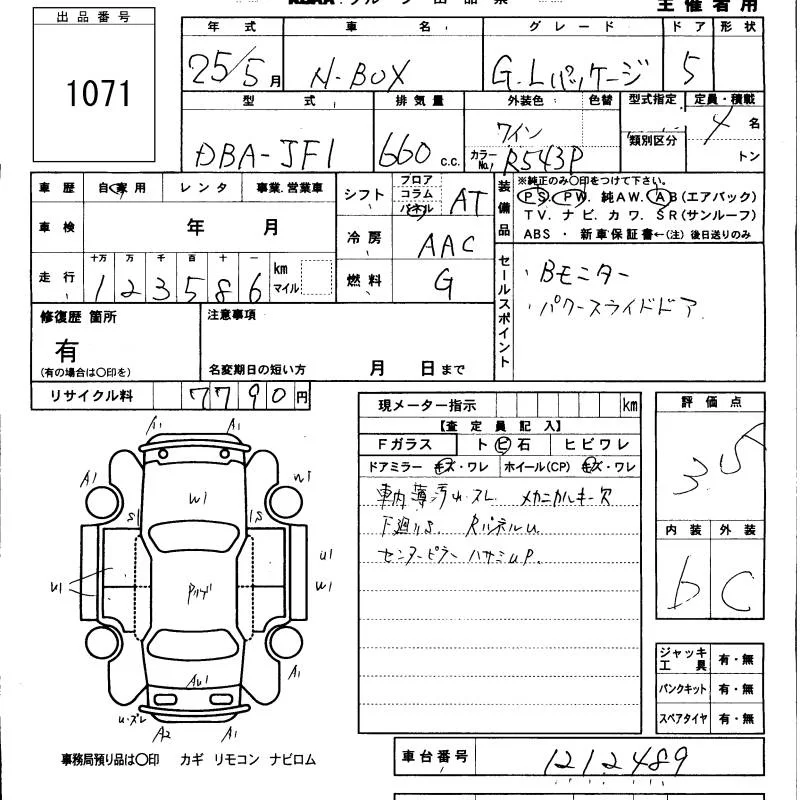 出品番号
1071
主催者用
年式 車名 グレード ドア 形状
25/5月 N-BOX G.Lパッケージ 5
型式 排気量 外装色 色替 型式指定 定員・積載
DBA-JF1 660 c.c. ワイン カラーNo. R543P 類別区分 4名
トン
車歴 自家用 レンタ 事業.営業車
車検 年 月
走行 十万 万 千 百 十 一
1 2 3 5 8 6 km マイル
シフト フロア コラム パネル AT
冷房 AAC
燃料 G
装備品
※純正のみ〇印をつけて下さい。
PS. PW. 純AW. AB(エアバック)
TV. ナビ. カワ. SR(サンルーフ)
ABS ・ 新車保証書←(注) 後日送りのみ
セールスポイント
・Bモニター
・パワースライドドア
修復歴 箇所
有
(有の場合は〇印を)
注意事項
名変期日の短い方 月 日まで
リサイクル料 7790円
現メーター指示 km
【査定員記入】
Fガラス トビ石 ヒビワレ
ドアミラー キズ・ワレ ホイール(CP) キズ・ワレ
車内薄汚れ スレ メカニカルキー欠
下廻りS. RパネルU
センターピラー ハサミUP.
評価点
3.5
内装 外装
b C
A1 A1
A1 W1 W1
S1 1S
U1 U1
W1
AU1 A1
U・ズレ A2 A1
ジャッキ工具 有・無
パンクキット 有・無
スペアタイヤ 有・無
事務局預り品は〇印 カギ リモコン ナビロム
車台番号 1212489